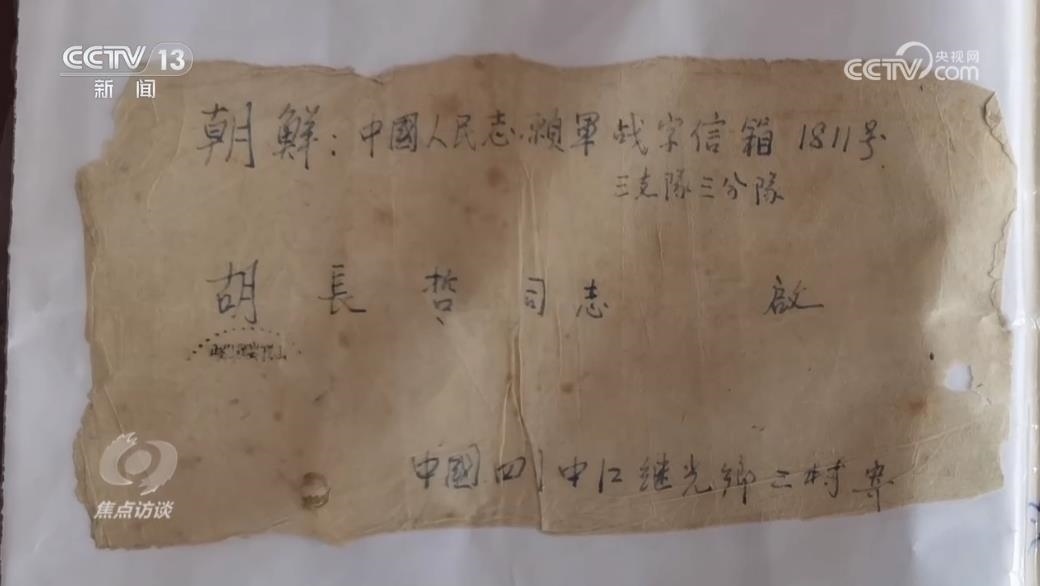 CCTV 13
新闻
CCTV.com 央视网
朝鮮：中國人民志願軍战字信箱1811号
三支隊三分隊
胡長哲同志 啟
中國四川中江继光鄉二村寄
焦点访谈